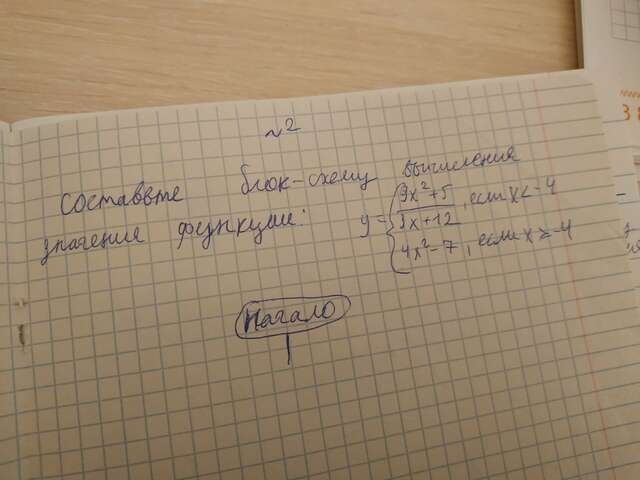 №2
Составьте блок-схему вычисления
значения функции:
y = { (9x²+5)/(3x+12), если x < -4
4x²-7, если x ≥ -4
Начало